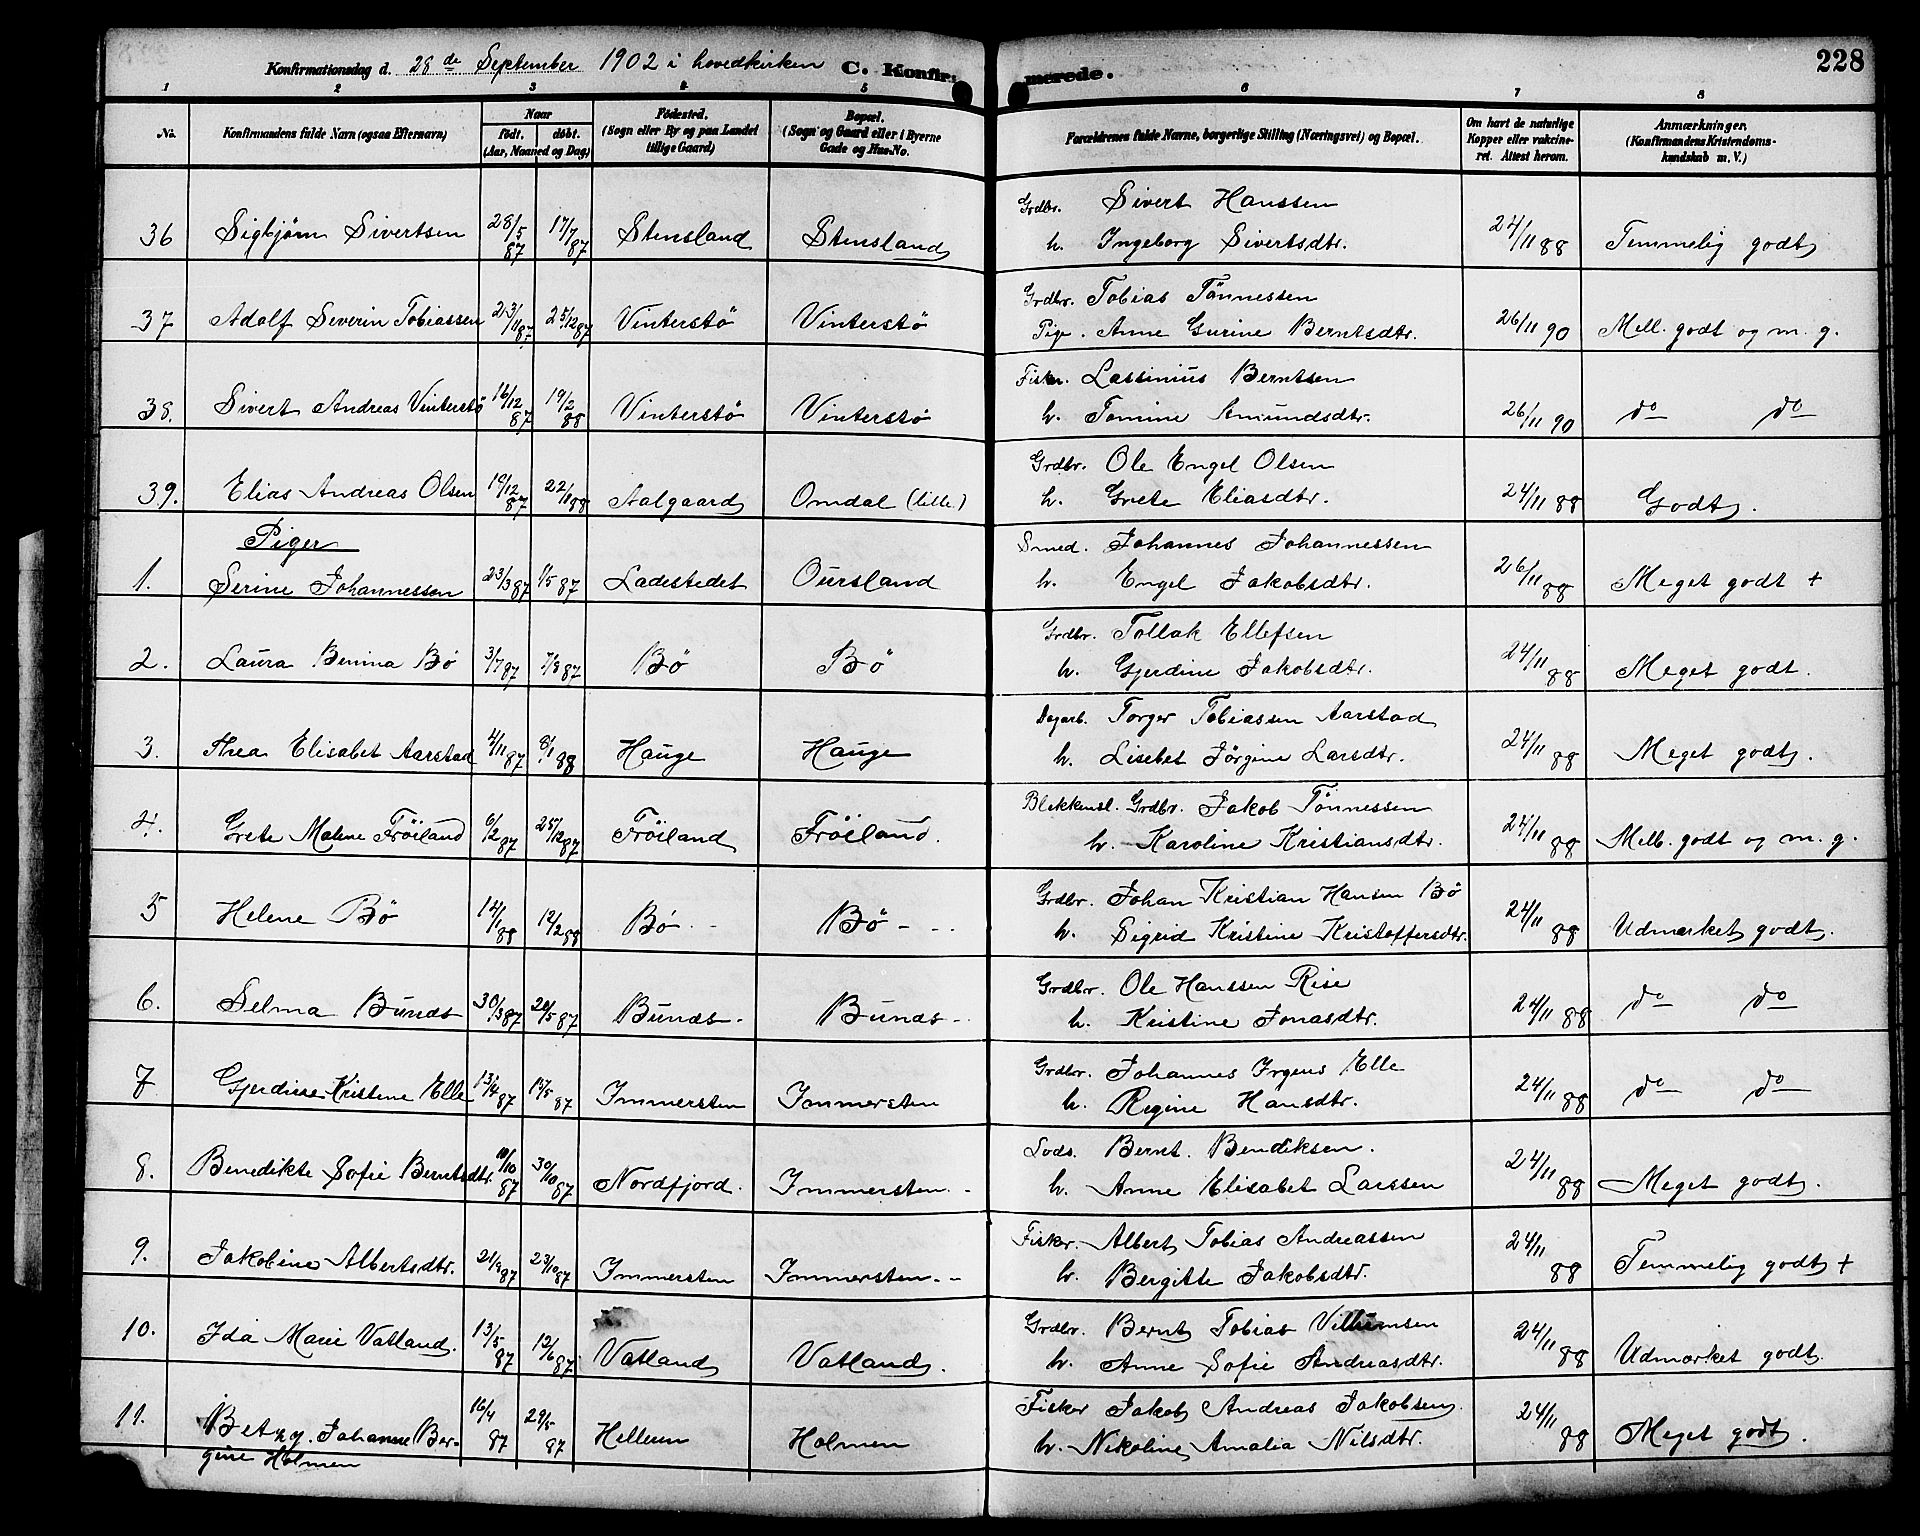 228
Konfirmationsdag d. 28de September 1902 i hovedkirken C. Konfirmerede.
1 2 3 4 5 6 7 8
No. Konfirmandens fulde Navn (ogsaa Efternavn) Naar født. døbt. (Aar, Maaned og Dag) Fødested. (Sogn eller By og paa Landet tillige Gaard) Bopæl. (Sogn og Gaard eller i Byerne Gade og Hus-No. Forældrenes fulde Navne, borgerlige Stilling (Næringsvei) og Bopæl. Om havt de naturlige Kopper eller vakcineret. Attest herom. Anmærkninger. (Konfirmandens Kristendomskundskab m. V.)
36 Sigbjørn Sivertsen 28/5 87 17/7 87 Stensland Stensland Grdbr. Sivert Hanssen
h. Ingeborg Sivertsdtr. 24/11 88 Temmelig godt
37 Adolf Severin Tobiassen 23/11 87 25/12 87 Vinterstö Vinterstö Grdbr. Tobias Tönnessen
Pige. Anne Gurine Berntsdtr. 26/11 90 Mell. godt og m. g.
38. Sivert Andreas Vinterstö 16/12 87 19/2 88 Vinterstö Vinterstö Fisker. Lassinius Berntsen
h. Tomine Amundsdtr. 26/11 90 do do
39. Elias Andreas Olsen 19/12 87 22/1 88 Aalgaard Omdal (lille) Grdbr. Ole Engel Olsen
h. Grete Eliasdtr. 24/11 88 Godt.
Piger
1. Serine Johannessen 23/3 87 1/5 87 Ladestedet Oursland Smed. Johannes Johannessen
h. Engel Jakobsdtr. 26/11 88 Meget godt +
2. Laura Benina Bö 3/7 87 7/8 87 Bö Bö Grdbr. Tollak Ellefsen
h. Gjerdine Jakobsdtr. 24/11 88 Meget godt.
3. Thea Elisabet Aarstad 4/11 87 8/1 88 Hauge Hauge Dagarb. Torger Tobiassen Aarstad
h. Lisebet Jörgine Larsdtr. 24/11 88 Meget godt.
4. Grete Malene Fröiland 6/12 87 25/12 87 Fröiland Fröiland. Blekkensl. Grdbr. Jakob Tönnessen
h. Karoline Kristiansdtr. 24/11 88 Mell. godt og m. g.
5 Helene Bö 14/1 88 12/2 88 Bö Bö Grdbr. Johan Kristian Hansen Bö
h. Sigrid Kristine Kristoffersdtr. 24/11 88 Udmærket godt.
6. Selma Bunds 30/3 87 20/5 87 Bunds Bunds Grdbr. Ole Hanssen Rise
h. Kristine Jonasdtr. 24/11 88 do do
7 Gjerdine Kristine Elle 13/4 87 15/5 87 Immersten Immersten Grdbr. Johannes Irgens Elle
h. Regine Hansdtr. 24/11 88 do do
8. Benedikte Sofie Berntsdtr. 10/10 87 30/10 87 Nordfjord. Immersten. Lods. Bernt. Bendiksen.
h. Anne Elisabet Larssen 24/11 88 Meget godt.
9. Jakobine Albertsdtr. 21/9 87 23/10 87 Immersten Immersten. Fisker. Albert Tobias Andreassen
h. Bergitte Jakobsdtr. 24/11 88 Temmelig godt +
10. Ida Marie Vatland. 13/5 87 12/6 87 Vatland Vatland. Grdbr. Bernt Tobias Villumsen
h. Anne Sofie Andreasdtr. 24/11 88 Udmærket godt.
11. Betzy. Johanne Bergine Holmen 16/4 87 29/5 87 Helleren Holmen Fisker Jakob Andreas Jakobsen.
h. Nikoline Amalia Nilsdtr. 24/11 88 Meget godt.